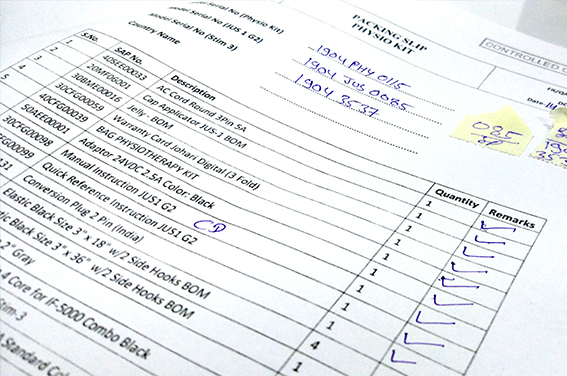 PACKING SLIP
PHYSIO KIT
CONTROLLED C
Model Serial No (Physio Kit)
1904 PHY 0115
Model Serial No (JUS 1 G2)
1904 JUS 0085
Model Serial No (Stim 3)
1904 3537
Country Name
Date
085
S.No. SAP No. Description Quantity Remarks
1 40SEE00033 AC Cord Round 3Pin 5A 1
2 20MTG6001 Cap Applicator JUS-1 BOM 1
3 30BME00016 Jelly - BOM 1
4 30CFG00059 Warranty Card Johari Digital (3 Fold) 1
5 40CFG00039 BAG PHYSIOTHERAPY KIT 1
50AEE00001 Adaptor 24VDC 2.5A Color: Black 1
30CFG00098 Manual Instruction JUS1 G2 CD 1
Quick Reference Instruction JUS1 G2 1
Conversion Plug 2 Pin (India) 1
Elastic Black Size 3" x 18" w/2 Side Hooks BOM
Black Size 3" x 36" w/2 Side Hooks BOM
2" Gray 4
4 Core for IF-5000 Combo Black 1
Stim-3
Standard Color